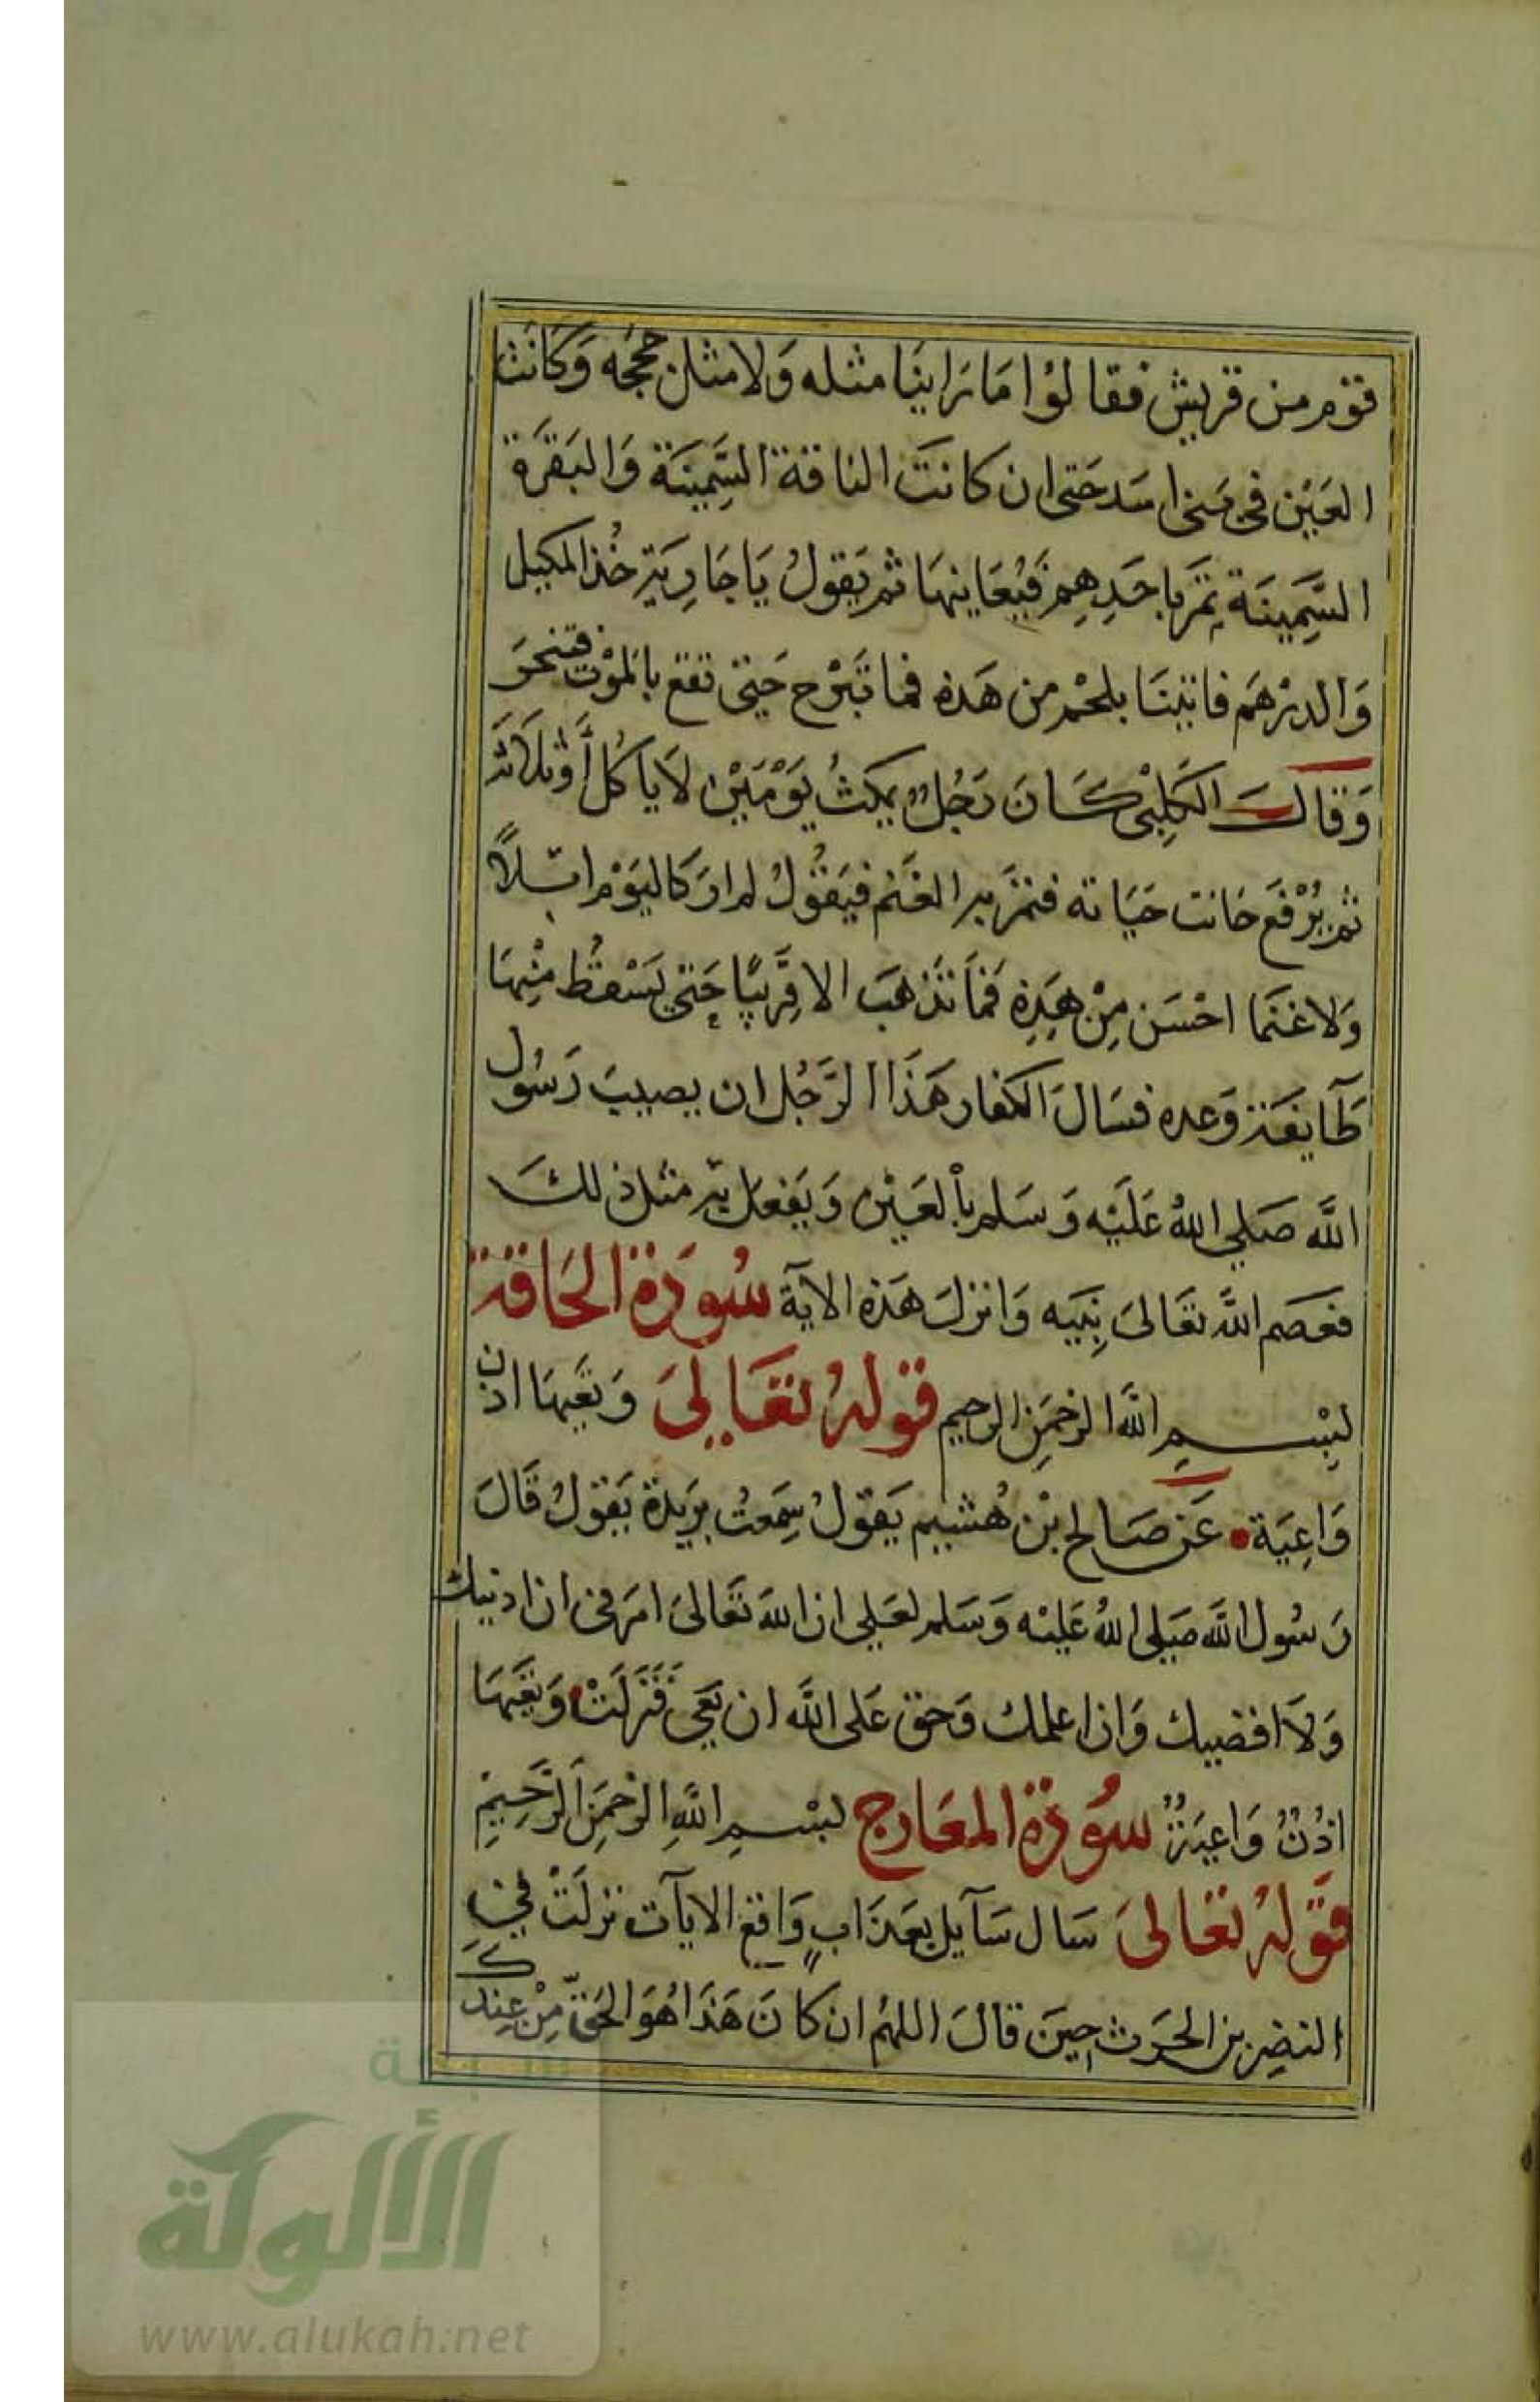 قوم من قريش فقالوا ما راينا مثله ولا مثل حججه وكانت
العين في بني اسد حتى ان كانت الناقة السمينة والبقرة
السمينة تمر باحدهم فيعاينها ثم يقول يا جارية خذ المكيل
والدرهم فاتينا بلحم من هذه فما تبرح حتى تقع بالموت فتنحر
وقال الكلبي كان رجل يمكث يومين لا ياكل أو ثلاثة
ثم يرفع جانت حياته فتمر به الغنم فيقول لم ار كاليوم ابلاً
ولا غنما احسن من هذه فما تذهب الا قريبًا حتى يسقط منها
طآيفة وعده فسال الكفار هذا الرجل ان يصيب رسول
الله صلى الله عليه وسلم بالعين ويفعل به مثل ذلك
فعصم الله تعالى نبيه وانزل هذه الاية سورة الحاقة
بسم الله الرحمن الرحيم قوله تعالى وتعيها اذن
واعية عن صالح بن هشيم يقول سمعت بريدة يقول قال
رسول الله صلى الله عليه وسلم لعلي ان الله تعالى امرني ان ادنيك
ولا اقضيك وان اعلمك وحق على الله ان تعي فنزلت وتعيها
اذن واعية سورة المعارج بسم الله الرحمن الرحيم
قوله تعالى سال سآيل بعذاب واقع الايات نزلت في
النضر بن الحرث حين قال اللهم ان كان هذا هو الحق من عندك
شبكة
الألوكة
www.alukah.net